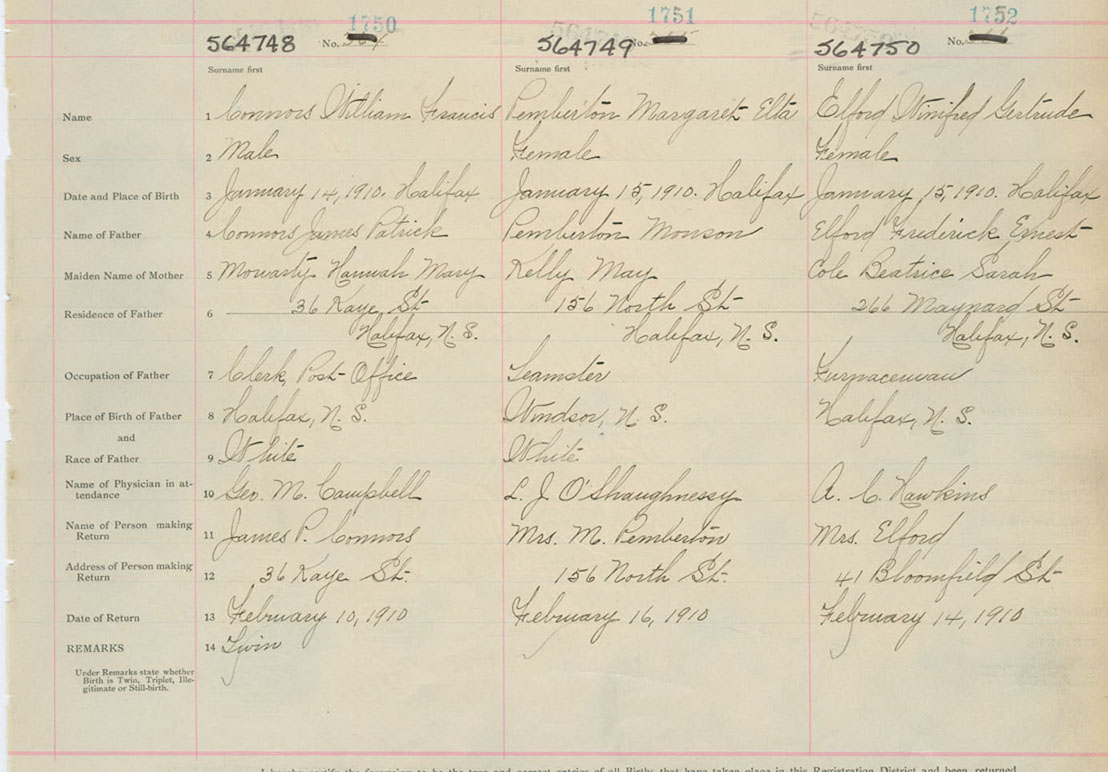 1750 1751 1752
564748 No. 564749 No. 564750 No.
Surname first Surname first Surname first
Name 1 Connors William Francis Pemberton Margaret Elta Elford Winifred Gertrude
Sex 2 Male Female Female
Date and Place of Birth 3 January 14, 1910. Halifax January 15, 1910. Halifax January 15, 1910. Halifax
Name of Father 4 Connors James Patrick Pemberton Monson Elford Frederick Ernest
Maiden Name of Mother 5 Moriarty Hannah Mary Kelly May Cole Beatrice Sarah
Residence of Father 6 36 Kaye St 156 North St 266 Maynard St
Halifax, N. S. Halifax, N. S. Halifax, N. S.
Occupation of Father 7 Clerk, Post Office Teamster Furnaceman
Place of Birth of Father 8 Halifax, N. S. Windsor, N. S. Halifax, N. S.
and
Race of Father 9 White White
Name of Physician in at-
tendance 10 Geo. M. Campbell L. J. O'Shaughnessy A. C. Hawkins
Name of Person making
Return 11 James P. Connors Mrs. M. Pemberton Mrs. Elford
Address of Person making
Return 12 36 Kaye St. 156 North St. 41 Bloomfield St
Date of Return 13 February 10, 1910 February 16, 1910 February 14, 1910
REMARKS 14 Twin
Under Remarks state whether
Birth is Twin, Triplet, Ille-
gitimate or Still-birth.
I hereby certify the foregoing to be the true and correct entries of all Births that have taken place in this Registration District and been returned